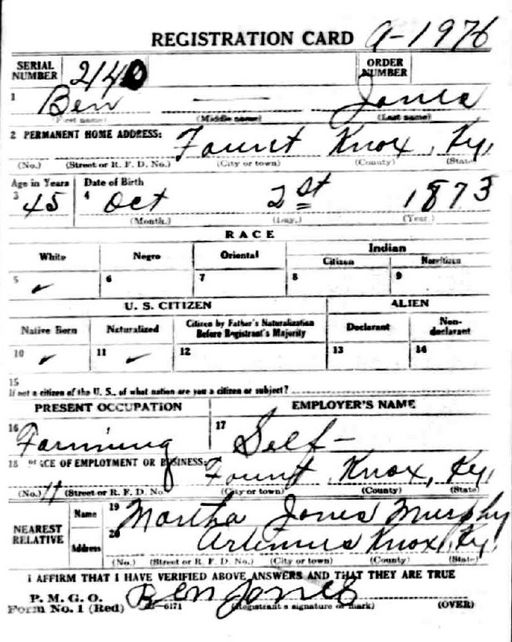 REGISTRATION CARD A-1976
SERIAL NUMBER 2140 ORDER NUMBER
1 Ben — Jones
(First name) (Middle name) (Last name)
2 PERMANENT HOME ADDRESS: Fount Knox, Ky,
(No.) (Street or R. F. D. No.) (City or town) (County) (State)
Age in Years Date of Birth
3 45 4 Oct 2st 1873
(Month.) (Day.) (Year.)
RACE
White Negro Oriental Indian
Citizen Noncitizen
5 ✓ 6 7 8 9
U. S. CITIZEN ALIEN
Native Born Naturalized Citizen by Father's Naturalization Before Registrant's Majority Declarant Non-declarant
10 ✓ 11 ✓ 12 13 14
15
If not a citizen of the U. S., of what nation are you a citizen or subject?
PRESENT OCCUPATION EMPLOYER'S NAME
16 Farming 17 Self-
18 PLACE OF EMPLOYMENT OR BUSINESS: Fount, Knox, Ky,
(No.) (Street or R. F. D. No.) (City or town) (County) (State)
NEAREST RELATIVE Name 19 Martha Jones Murphy
Address 20 Artemus Knox, Ky,
(No.) (Street or R. F. D. No.) (City or town) (County) (State)
I AFFIRM THAT I HAVE VERIFIED ABOVE ANSWERS AND THAT THEY ARE TRUE
P. M. G. O.
Form No. 1 (Red) 3—6171 Ben Jones (Registrant's signature or mark) (OVER)